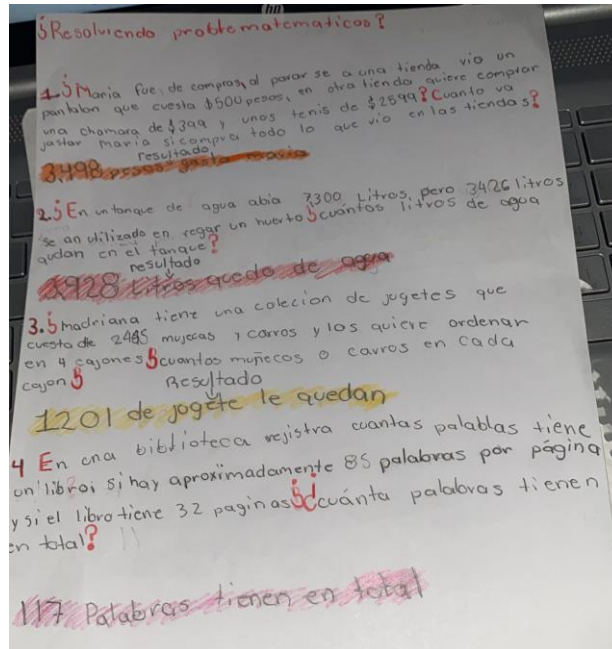 ¿Resolviendo problematematicos?
1. ¿Maria fue de compras, al parar se a una tienda vio un
pantalon que cuesta $500 pesos, en otra tienda quiere comprar
una chamara de $399 y unos tenis de $2599? Cuanto va
gastar maria si compra todo lo que vio en las tiendas?
resultado
3,498 pesos gasta maria
2. ¿En un tanque de agua abia 7300 Litros, pero 3426 litros
se an utilizado en regar un huerto ¿cuantos litros de agua
qudan en el tanque?
resultado
Litros quedo de agua
3. ¿madriana tiene una colecion de jugetes que
cuesta de mujecas y carros y los quiere ordenar
en 4 cajones ¿cuantos muñecos o carros en cada
cajon ¿
Resultado
1201 de jogete le quedan
4 En una biblioteca rejistra cuantas palablas tiene
un libro; si hay aproximadamente 85 palabras por página
y si el libro tiene 32 paginas ¿cuánta palabras tienen
en total?
117 Palabras tienen en total